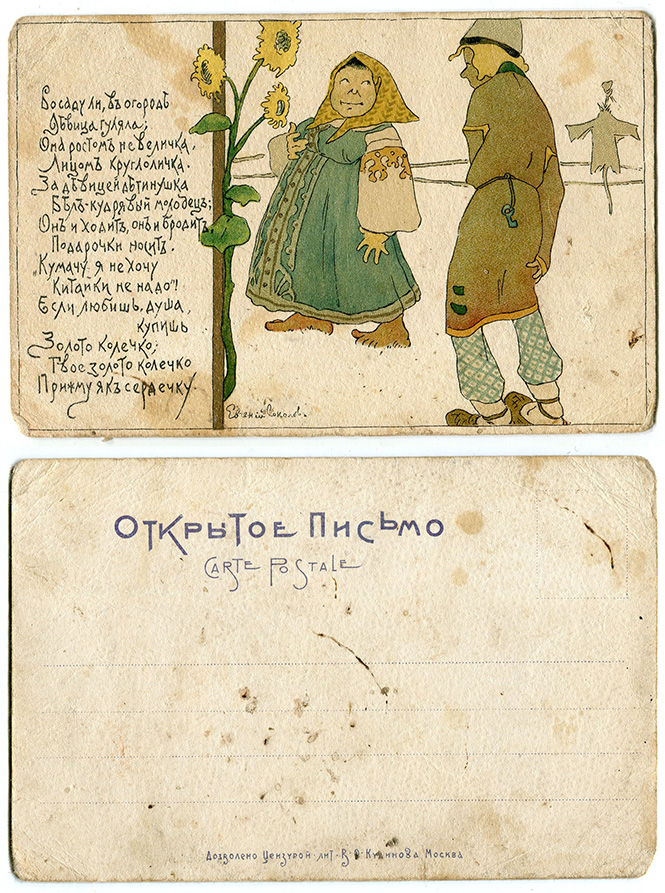 Во саду ли, въ огородѣ
Дѣвица гуляла;
Она ростомъ не величка.
Лицомъ круглоличка.
За дѣвицей дѣтинушка
Бѣлъ-кудрявый молодецъ;
Онъ и ходитъ, онъ и бродитъ,
Подарочки носитъ.
„Кумачу я не хочу
Китайки не надо"!
Если любишь, душа,
купишь
Золото колечко;
Твое золото колечко
Прижму я къ сердечку.
Евгеній Соколов.
Открытое Письмо
Carte Postale
Дозволено Цензурой лит. В. О. Кудинова Москва